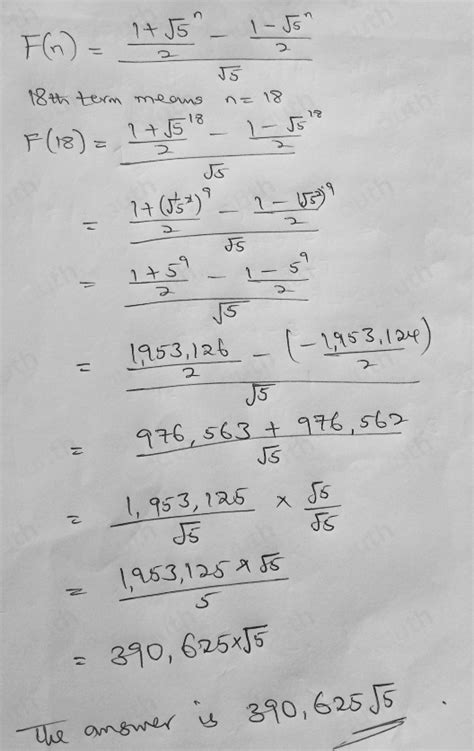 F(n) = (1+√5ⁿ/2 - 1-√5ⁿ/2)/√5
18th term means n= 18
F(18) = (1+√5¹⁸/2 - 1-√5¹⁸/2)/√5
= (1+(√5²)⁹/2 - 1-(√5²)⁹/2)/√5
= (1+5⁹/2 - 1-5⁹/2)/√5
= (1,953,126/2 - (-1,953,124/2))/√5
= (976,563 + 976,562)/√5
= 1,953,125/√5 × √5/√5
= 1,953,125×√5/5
= 390,625×√5
The answer is 390,625√5.